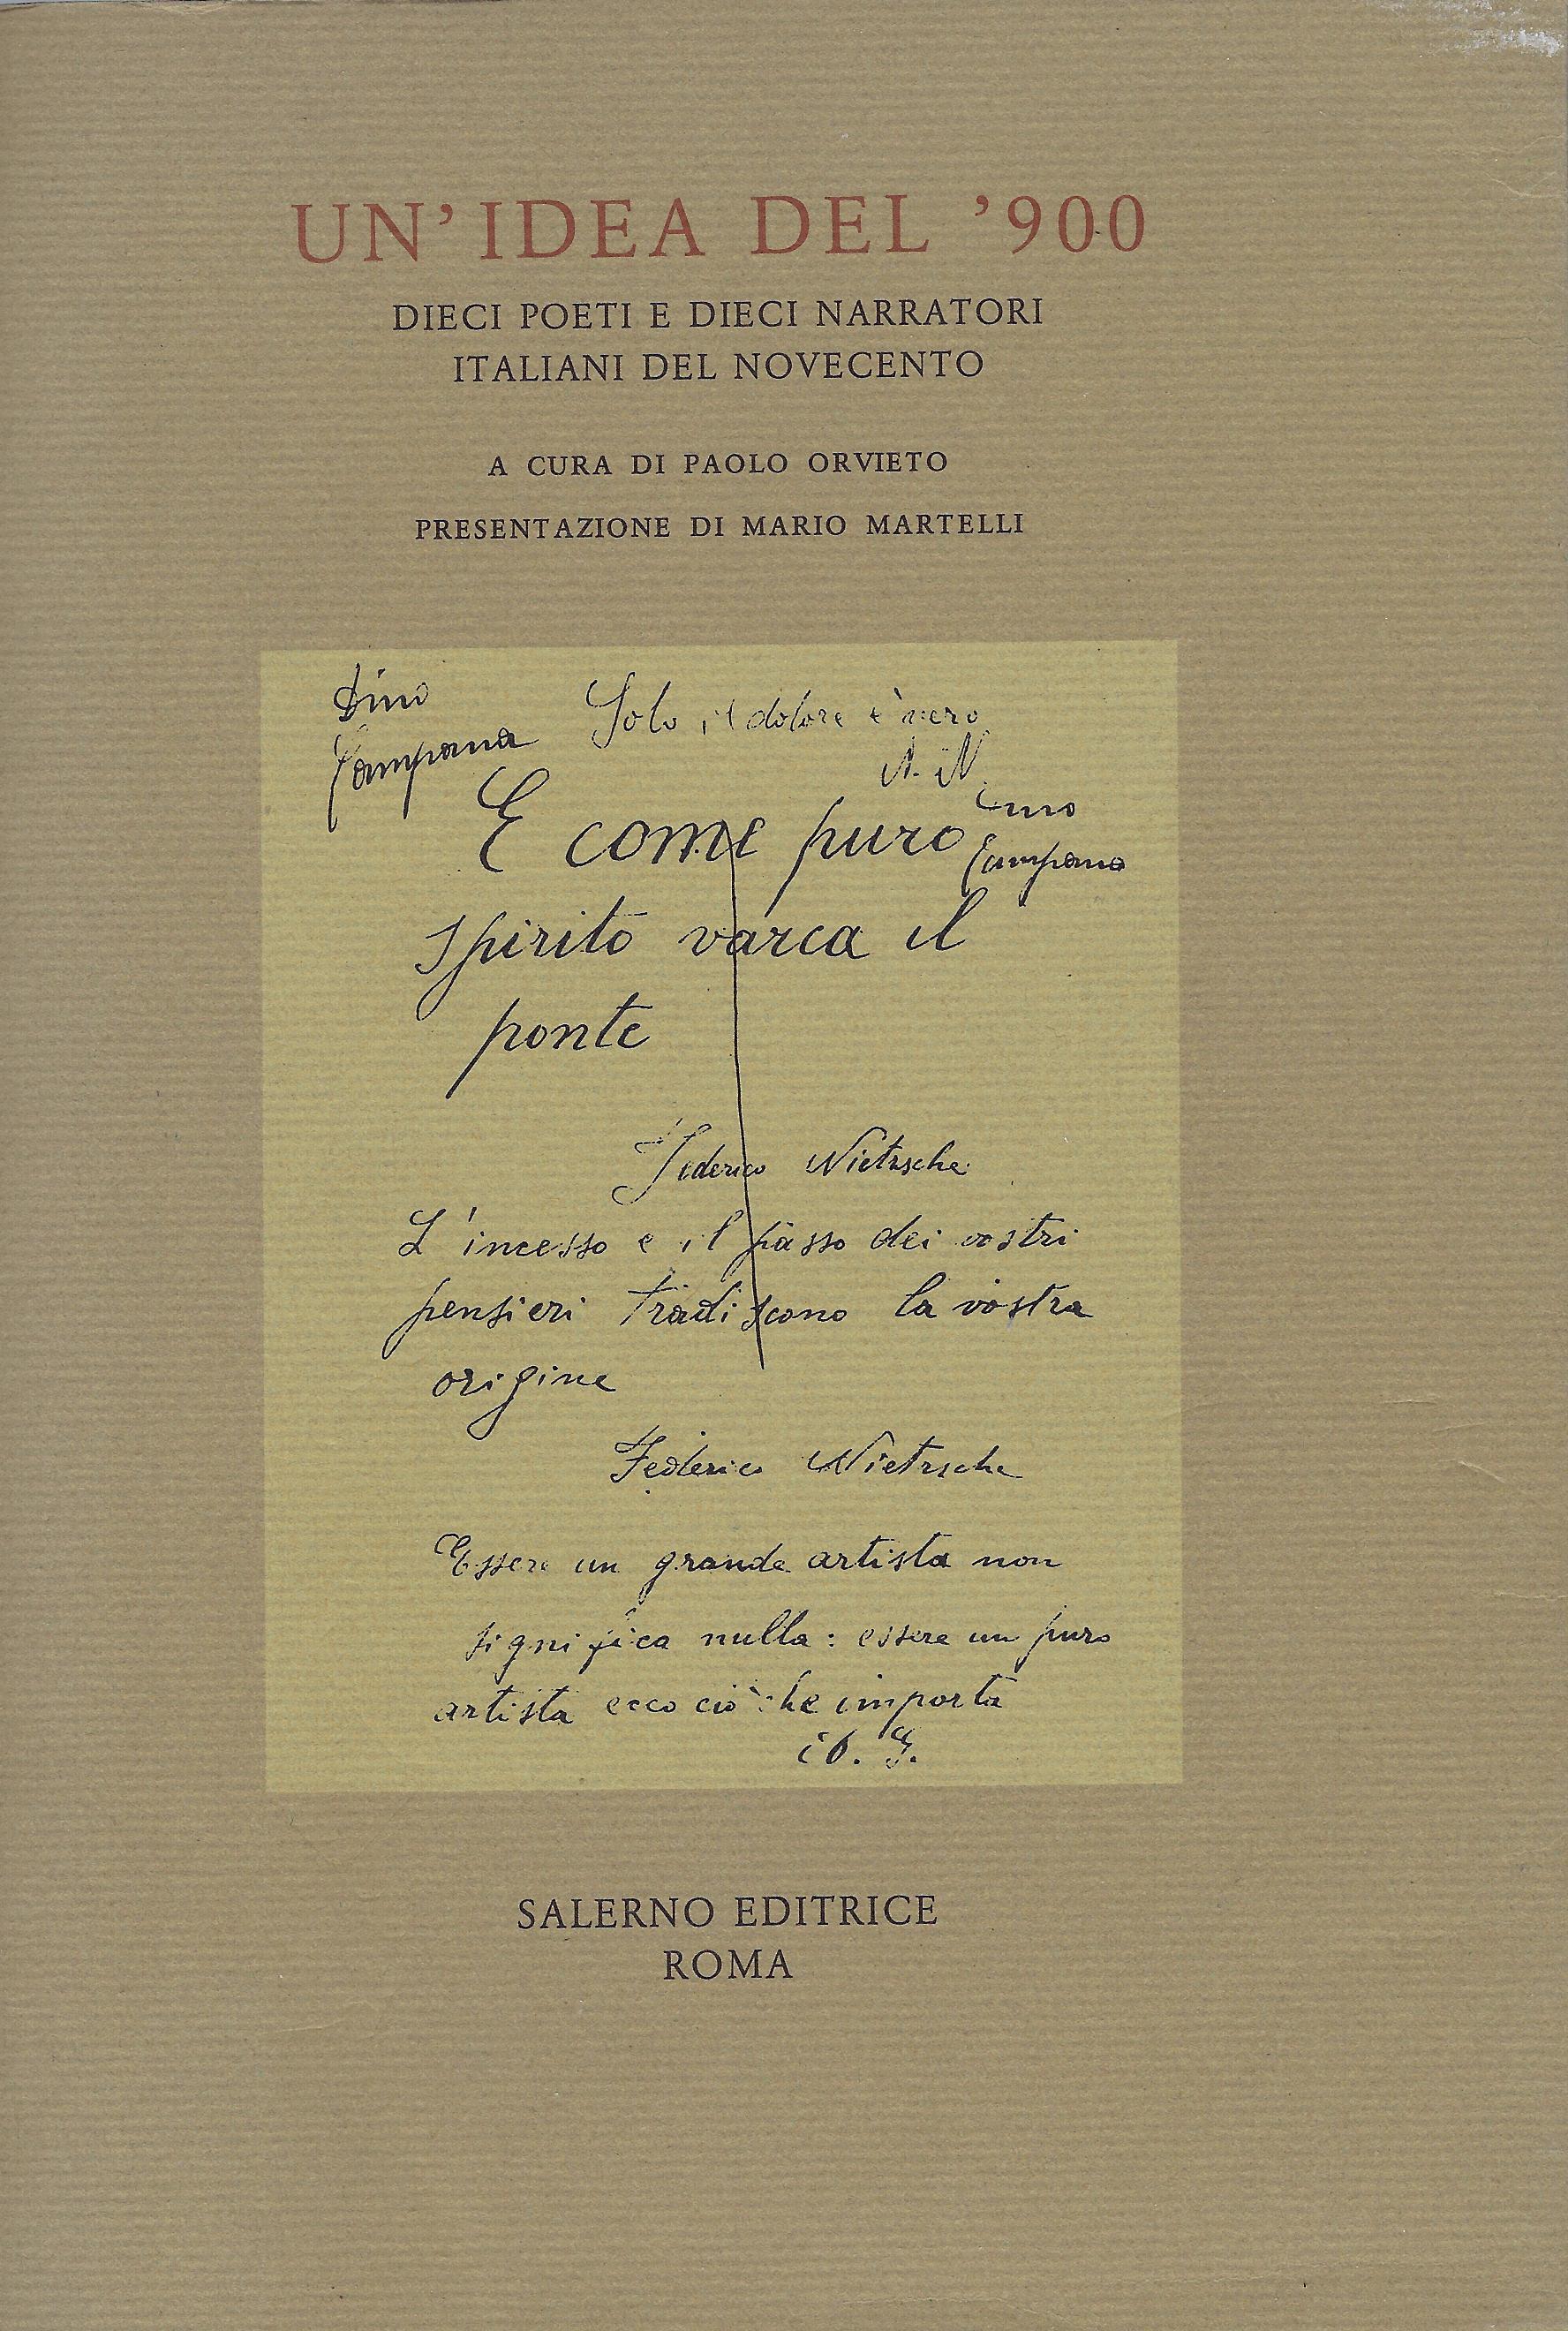 UN'IDEA DEL '900
DIECI POETI E DIECI NARRATORI
ITALIANI DEL NOVECENTO
A CURA DI PAOLO ORVIETO
PRESENTAZIONE DI MARIO MARTELLI
Dino
Campana
Solo il dolore è vero
E come puro
Campana
spirito varca il
ponte
Federico Nietzsche
L'incesso e il passo dei vostri
pensieri tradiscono la vostra
origine
Federico Nietzsche
Essere un grande artista non
significa nulla: essere un puro
artista ecco ciò che importa
SALERNO EDITRICE
ROMA